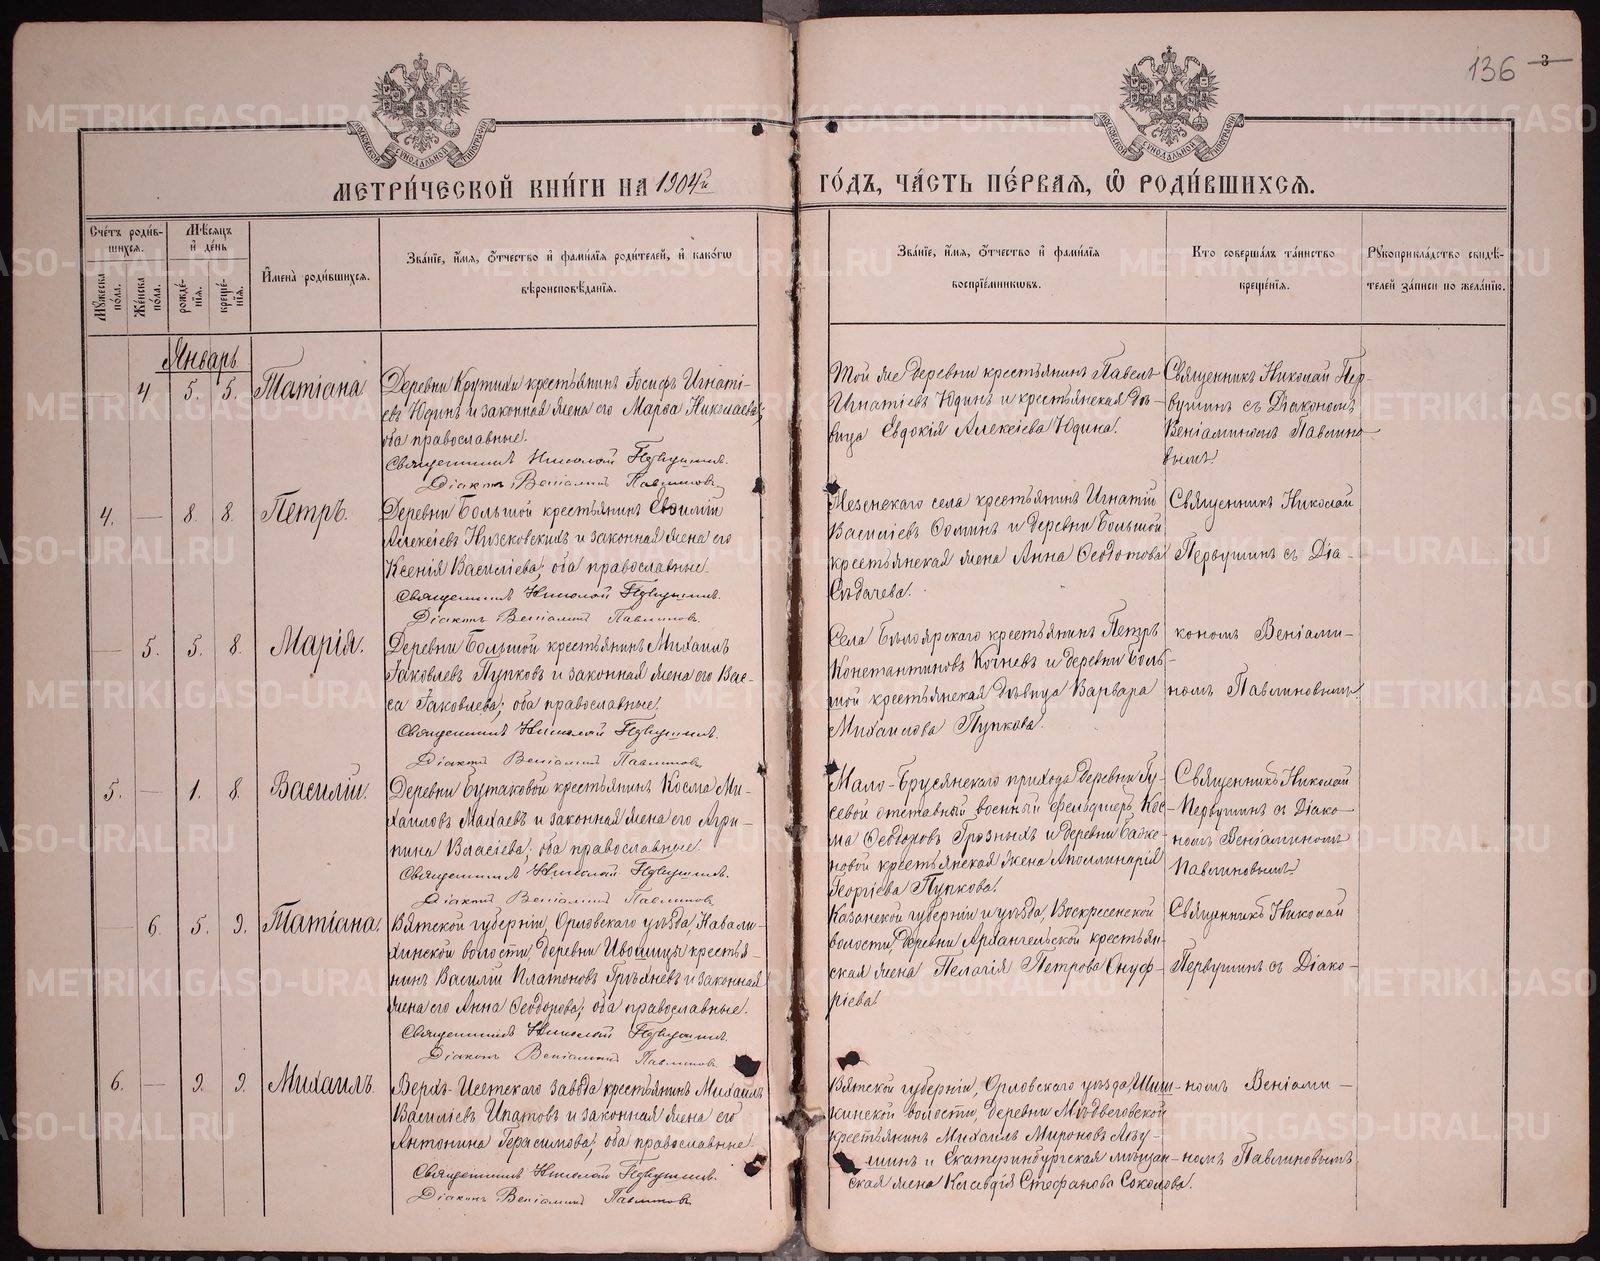 136 3
МЕТРИ́ЧЕСКОЙ КНИ́ГИ НА 1904й ГО́ДЪ, ЧА́СТЬ ПЕ́РВАЯ, Ѡ РОДИ́ВШИХСЯ.
Сче́тъ роди́в-
шихся.
Мꙋжеска по́ла.
Же́нска по́ла.
Мѣ́сяцъ и де́нь
рожде́-
нїя.
креще́-
нїя.
Имена̀ роди́вшихся.
Зва́нїе, и́мя, о́тчество и фами́лїя роди́телей, и како́гѡ
вѣроисповѣ́данїя.
Зва́нїе, и́мя, о́тчество и фами́лїя
воспрїе́мникѡвъ.
Кто̀ соверша́лъ та́инство
креще́нїя.
Рꙋкоприкла́дство свидѣ́-
телей за́писи по жела́нїю.
Январь
— 4 5. 5. Татіана
Деревни Крутихи крестьянинъ Іосифъ Игнаті-
евъ Юдинъ и законная жена его Марѳа Николаева;
оба православные.
Священникъ Николай Первушинъ.
Діаконъ Веніаминъ Павлиновъ
Той же деревни крестьянинъ Павелъ
Игнатіевъ Юдинъ и крестьянская дѣ-
вица Евдокія Алексіева Юдина.
Священникъ Николай Пер-
вушинъ съ Діакономъ
Веніаминомъ Павлино-
вымъ.
4. — 8. 8. Петръ.
Деревни Большой крестьянинъ
Алексіевъ и законная жена его
Ксенія Василіева; оба православные.
Священникъ Николай Первушинъ.
Діаконъ Веніаминъ Павлиновъ.
Мезенскаго села крестьянинъ Игнатій
Василіевъ Ѳоминъ и деревни Большой
крестьянская жена Анна Ѳеодотова
Священникъ Николай
Первушинъ съ Діа-
— 5. 5. 8. Марія.
Деревни Большой крестьянинъ Михаилъ
Іаковлевъ Пупковъ и законная жена его Вас-
са Іаковлева; оба православные.
Священникъ Николай Первушинъ.
Діаконъ Веніаминъ Павлиновъ
Села Бѣлоярскаго крестьянинъ Петръ
Константиновъ Кочневъ и деревни Боль-
шой крестьянская дѣвица Варвара
Михаилова Пупкова.
кономъ Веніами-
номъ Павлиновымъ
5. — 1. 8. Василій.
Деревни Бутаковой крестьянинъ Косма Ми-
хаиловъ Махаевъ и законная жена его Агри-
пина Власіева; оба православные.
Священникъ Николай Первушинъ.
Діаконъ Веніаминъ Павлиновъ
Мало-Брусянскаго прихода деревни Гу-
севой отставный военный фельдшеръ Кос-
ма Ѳеодоровъ Грозныхъ и деревни
новой крестьянская жена Аполлинарія
Георгіева Пупкова.
Священникъ Николай
Первушинъ съ Діако-
номъ Веніаминомъ
Павлиновымъ.
— 6. 5. 9. Татіана.
Вятской губерніи, Орловскаго уѣзда,
хинской волости, деревни крестья-
нинъ Василій Платоновъ и законная
жена его Анна Ѳеодорова; оба православные.
Священникъ Николай Первушинъ.
Діаконъ Веніаминъ Павлиновъ
Казанской губерніи и уѣзда, Воскресенской
волости, деревни Архангельской крестьян-
ская жена Пелагія Петрова Онуф-
ріева.
Священникъ Николай
Первушинъ съ Діако-
6. — 9. 9. Михаилъ.
Верхъ-Исетскаго завода крестьянинъ Михаилъ
Василіевъ Ипатовъ и законная жена его
Антонина Герасимова; оба православные.
Священникъ Николай Первушинъ.
Діаконъ Веніаминъ Павлиновъ
Вятской губерніи, Орловскаго уѣзда,
кинской волости, деревни
крестьянинъ Михаилъ Мироновъ
и Екатеринбургская мѣщан-
ская жена Клавдія Стефанова Соколова.
номъ Веніами-
номъ Павлиновымъ